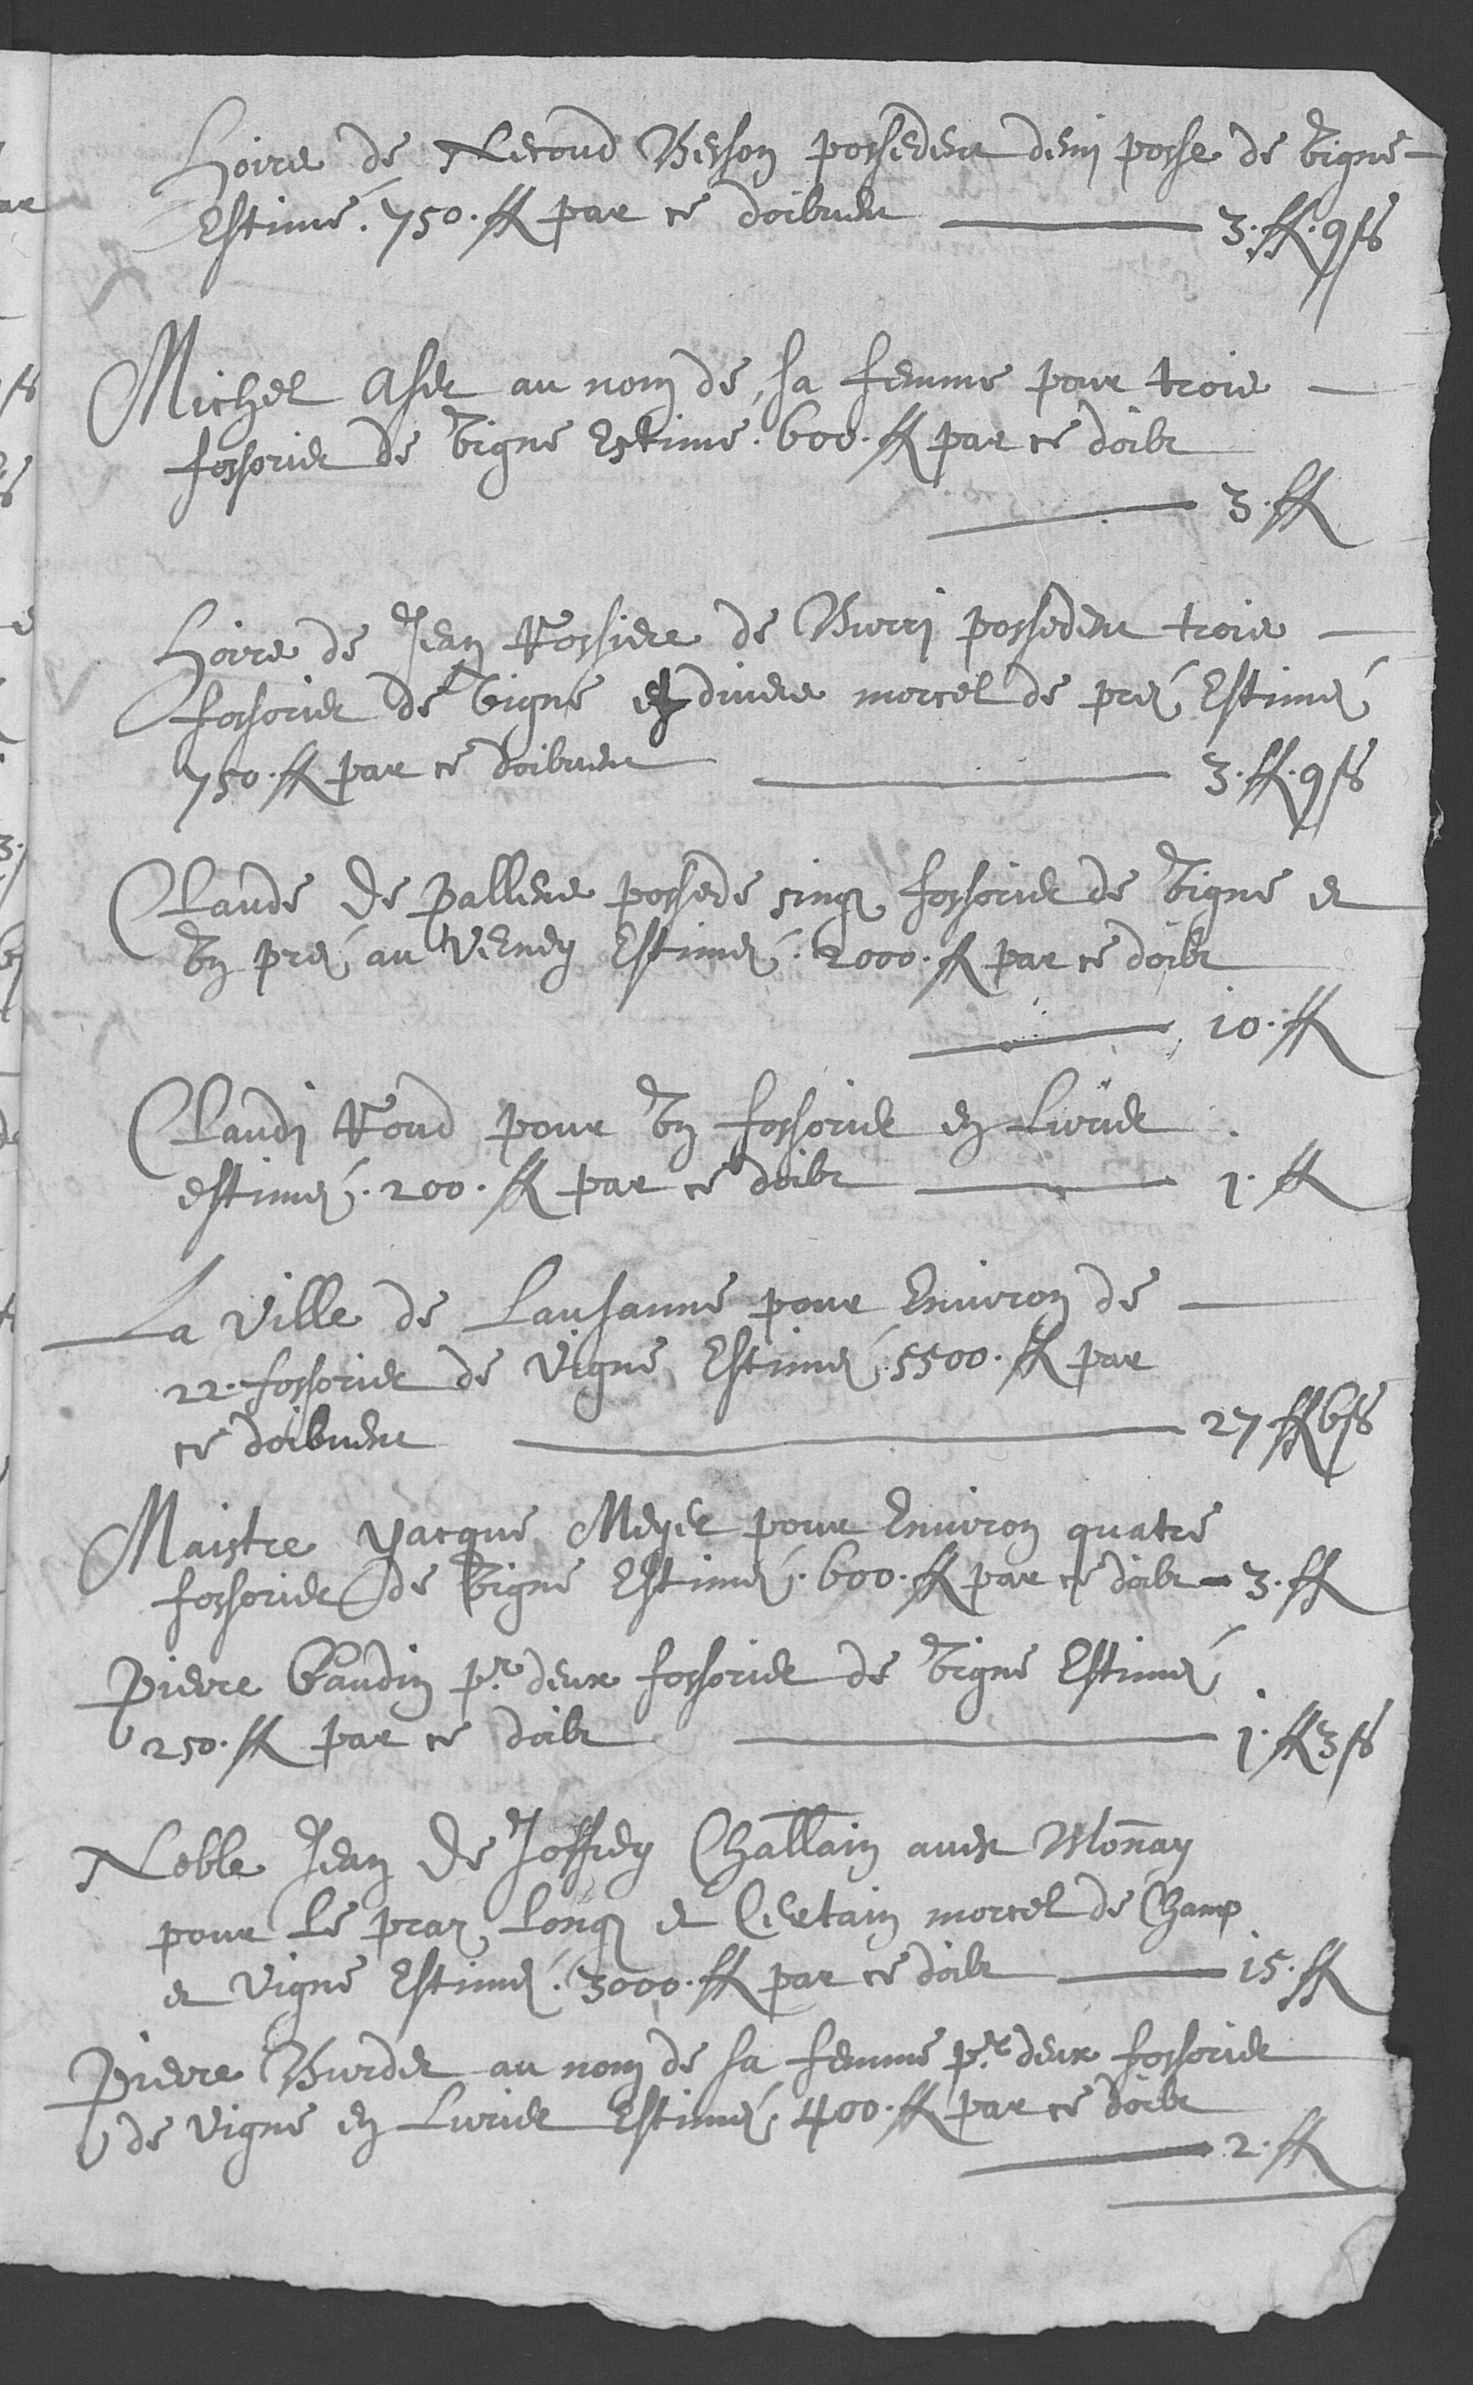 Hoirs de Nicoud Besson possedent demi posse de vigne
Estimé. 750. ff par ce doibvent 3. ff. 9 ss
Michel Aser au nom de sa femme pour trois
fossorier de vigne Estimé. 600. ff par ce doibt
3. ff
Hoirs de Jean Rossier de Burri possedent trois
fossorier de vigne et divers morcel de prez Estimez
750. ff par ce doibvent 3. ff. 9 ss
Claude De Pallens possede sinq fossorier de vigne et
un prez au Verney Estimez. 2000. ff par ce doibt
10. ff
Claudi Roud pour un fossorier en
estimez. 200. ff par ce doibt 1. ff
La Ville de Lausanne pour Environ de
22. fossorier de vigne Estimez. 5500. ff par
ce doibvent 27 ff 6 ss
Maistre Jacque Meyer pour Environ quatre
fossorier de vigne Estimez. 600. ff par ce doibt 3. ff
Pierre Gaudin pr. deux fossorier de vigne Estimez
250. ff par ce doibt 1. ff 3 ss
Noble Jean De Joffrey Challain avec Monnay
pour le praz long et Certain morcel de Champ
et vigne Estimez. 3000. ff par ce doibt 15. ff
Pierre Burdet au nom de sa femme pr. deux fossorier
de vigne en Estimez. 400. ff par ce doibt
2. ff